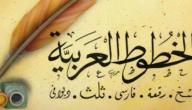 الخطوط العربية
نسخ . رقعة . فارسى . ثلث . ديوانى